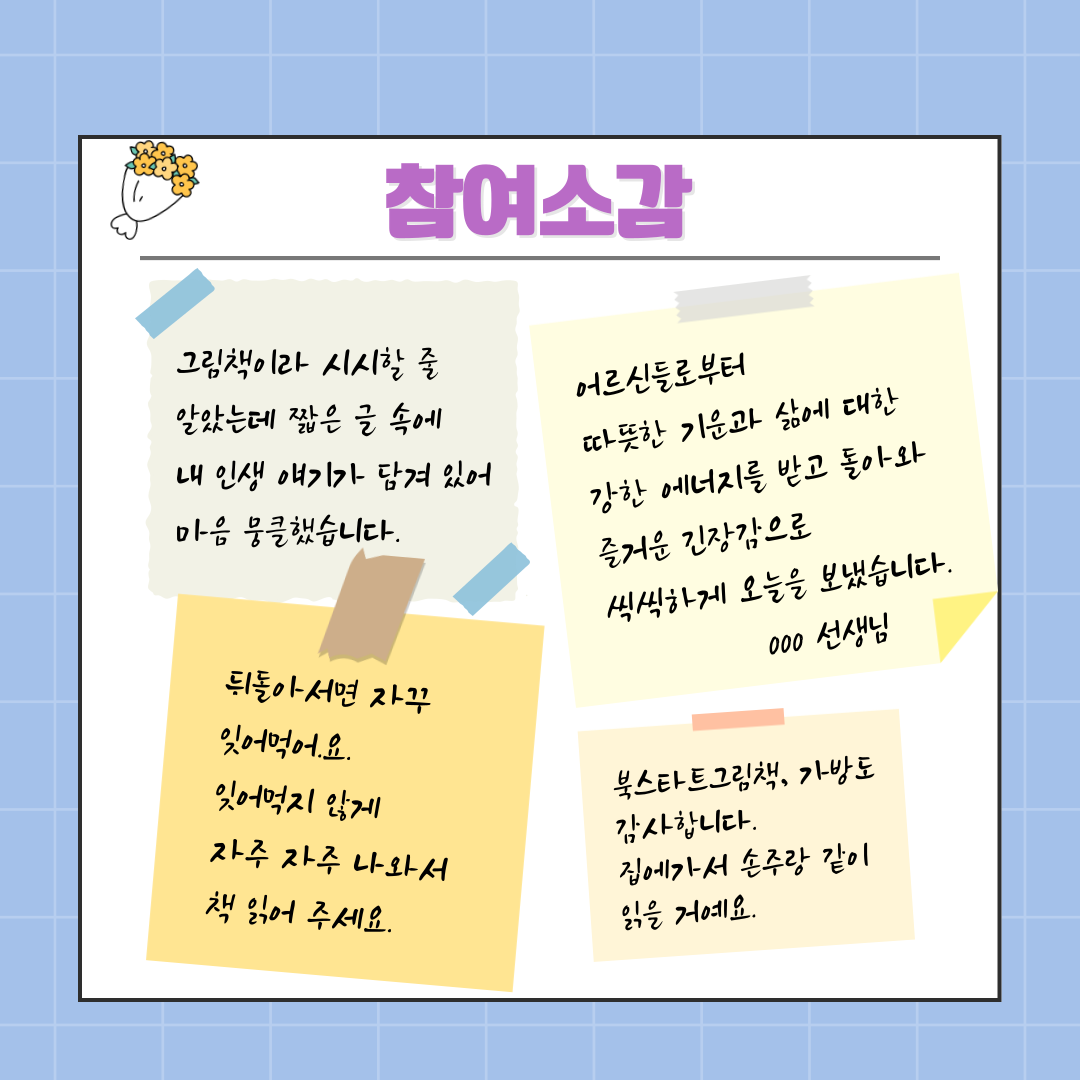 참여소감
그림책이라 시시할 줄
알았는데 짧은 글 속에
내 인생 얘기가 담겨 있어
마음 뭉클했습니다.
어르신들로부터
따뜻한 기운과 삶에 대한
강한 에너지를 받고 돌아와
즐거운 긴장감으로
씩씩하게 오늘을 보냈습니다.
000 선생님
뒤돌아서면 자꾸
잊어먹어.요.
잊어먹지 않게
자주 자주 나와서
책 읽어 주세요.
북스타트그림책, 가방도
감사합니다.
집에가서 손주랑 같이
읽을 거예요.